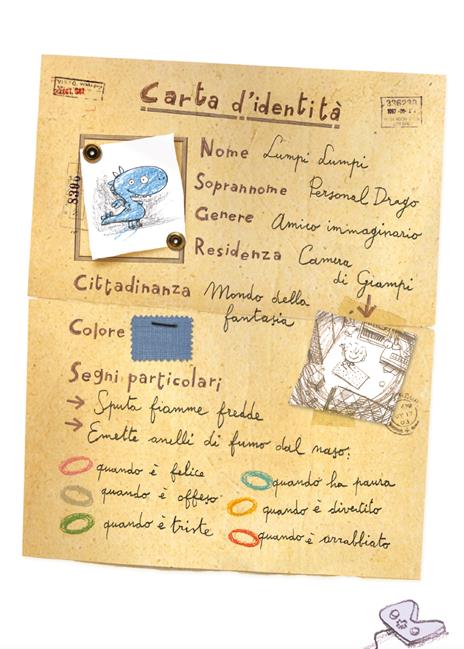 Carta d'identità
336233
8306
Nome Lumpi Lumpi
Soprannome Personal Drago
Genere Amico immaginario
Residenza Camera
di Giampi
Cittadinanza Mondo della
fantasia
Colore
Segni particolari
Sputa fiamme fredde
Emette anelli di fumo dal naso:
quando è felice
quando è offeso
quando è triste
quando ha paura
quando è divertito
quando è arrabbiato